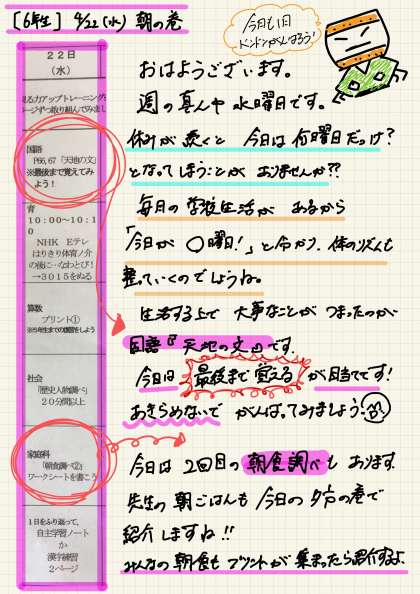 [6年生] 4/22(水) 朝の巻
今日も1日
ドンドンがんばろう!
22日
(水)
見る力アップトレーニングを
ページずつ取り組んでみまし
国語
P66,67「天地の文」
※最後まで覚えてみ
よう!
育
10:00~10:1
0
NHK Eテレ
はりきり体育ノ介
の後に…なわとび!
→3015をぬる
算数
プリント①
※5年生までの復習をしよう
社会
「歴史人物調べ」
20分間以上
家庭科
「朝食調べ②」
ワークシートを書こう
1日をふり返って、
自主学習ノート
か
漢字練習
2ページ
おはようございます。
週の真ん中 水曜日です。
休みが長くと 今日は何曜日だっけ?
となってしまうことが ありませんか??
毎日の 学校生活が あるから
「今日が 〇曜日!」と分かり、体のリズムも
整っていくのでしょうね。
生活する上で 大事なことが つまったのが
国語『天地の文』です。
今日は 最後まで覚える が目当てです!
あきらめないで がんばってみましょう!
今日は 2回目の 朝食調べも あります。
先生の朝ごはんも 今日の夕方の巻で
紹介しますね!!
みんなの朝食も プリントが 集まったら紹介するよ。